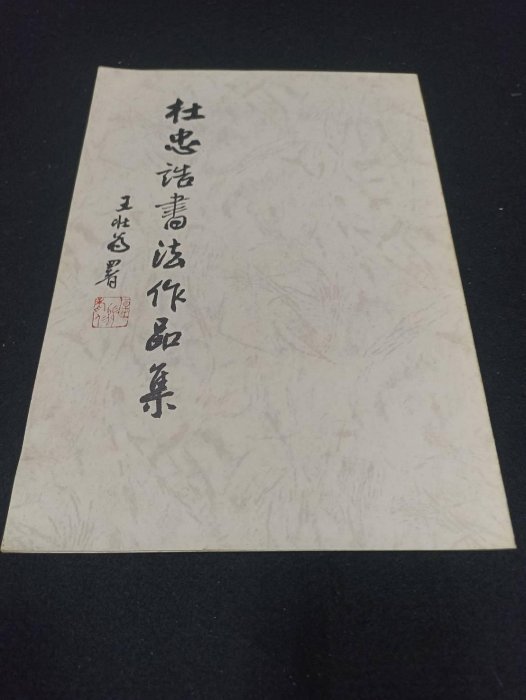 杜忠誥書法作品集
王壯為署